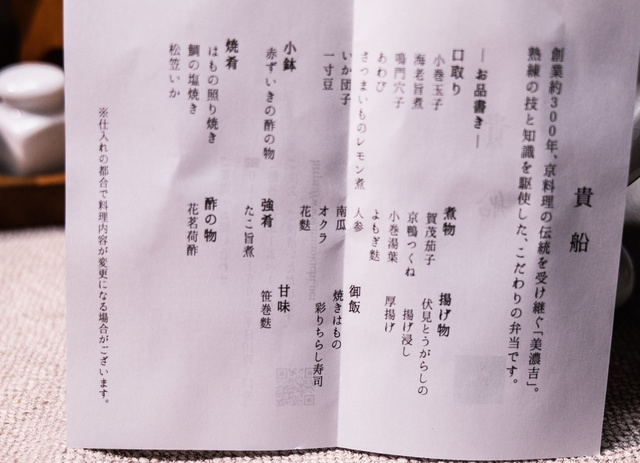 貴船
創業約300年、京料理の伝統を受け継ぐ「美濃吉」。
熟練の技と知識を駆使した、こだわりの弁当です。
― お品書き ―
口取り
小巻玉子
海老旨煮
鳴門穴子
あわび
さつまいものレモン煮
いか団子
一寸豆
小鉢
赤ずいきの酢の物
焼肴
はもの照り焼き
鯛の塩焼き
松笠いか
煮物
賀茂茄子
京鴨つくね
小巻湯葉
よもぎ麩
人参
南瓜
オクラ
花麩
強肴
たこ旨煮
酢の物
花茗荷酢
揚げ物
伏見とうがらしの
揚げ浸し
厚揚げ
御飯
焼きはもの
彩りちらし寿司
甘味
笹巻麩
※仕入れの都合で料理内容が変更になる場合がございます。